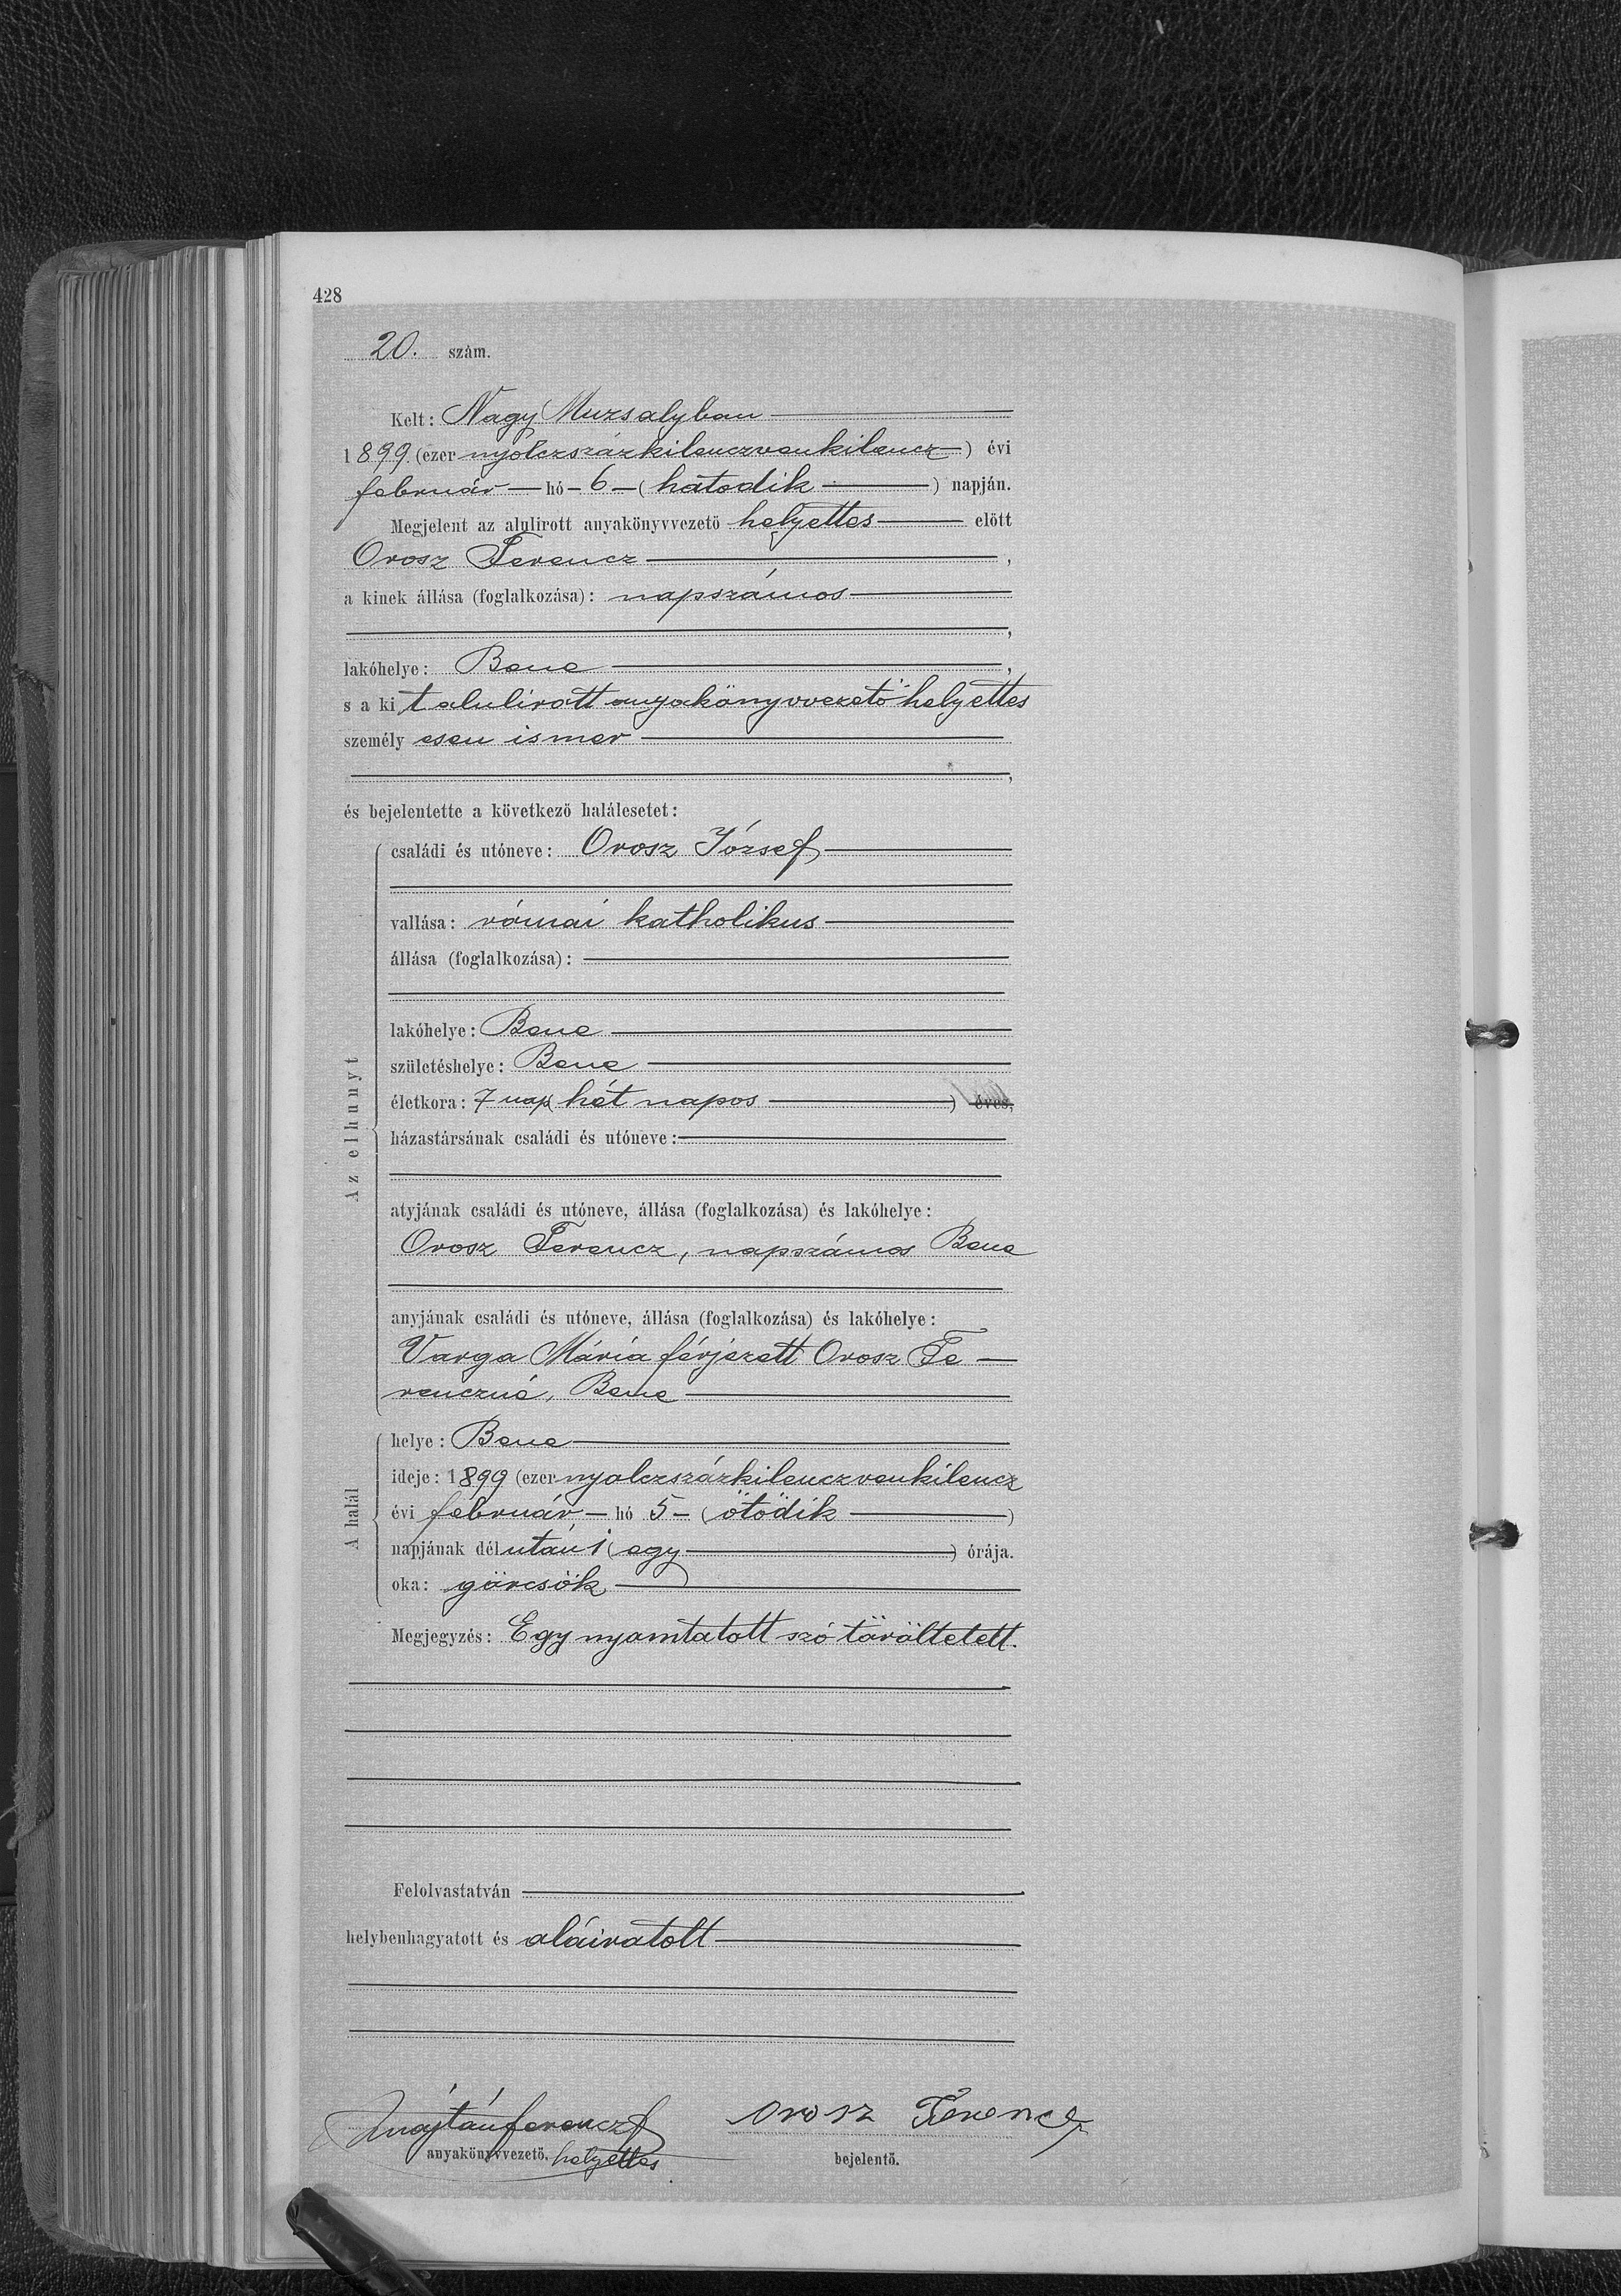 428
20. szám.
Kelt: Nagy Muzsalyban
1899 (ezer nyolczszázkilenczvenkilencz) évi
február hó 6 (hatodik) napján.
Megjelent az alulirott anyakönyvvezető helyettes előtt
Orosz Ferencz,
a kinek állása (foglalkozása): napszámos
,
lakóhelye: Bene,
s a kit alulirott anyakönyvvezető helyettes
személyesen ismer
,
és bejelentette a következő halálesetet:
Az elhunyt
családi és utóneve: Orosz József
vallása: római katholikus
állása (foglalkozása):
lakóhelye: Bene
születéshelye: Bene
életkora: 7 nap (hét napos) éves,
házastársának családi és utóneve:
atyjának családi és utóneve, állása (foglalkozása) és lakóhelye:
Orosz Ferencz, napszámos Bene
anyjának családi és utóneve, állása (foglalkozása) és lakóhelye:
Varga Mária férjezett Orosz Fe-
renczné, Bene
A halál
helye: Bene
ideje: 1899 (ezer nyolczszázkilenczvenkilencz
évi február hó 5 (ötödik)
napjának délutáni (egy) órája.
oka: görcsök
Megjegyzés: Egy nyomtatott szó töröltetett.
Felolvastatván
helybenhagyatott és aláiratott
ferencz Orosz Ferencz
anyakönyvvezető. helyettes bejelentő.